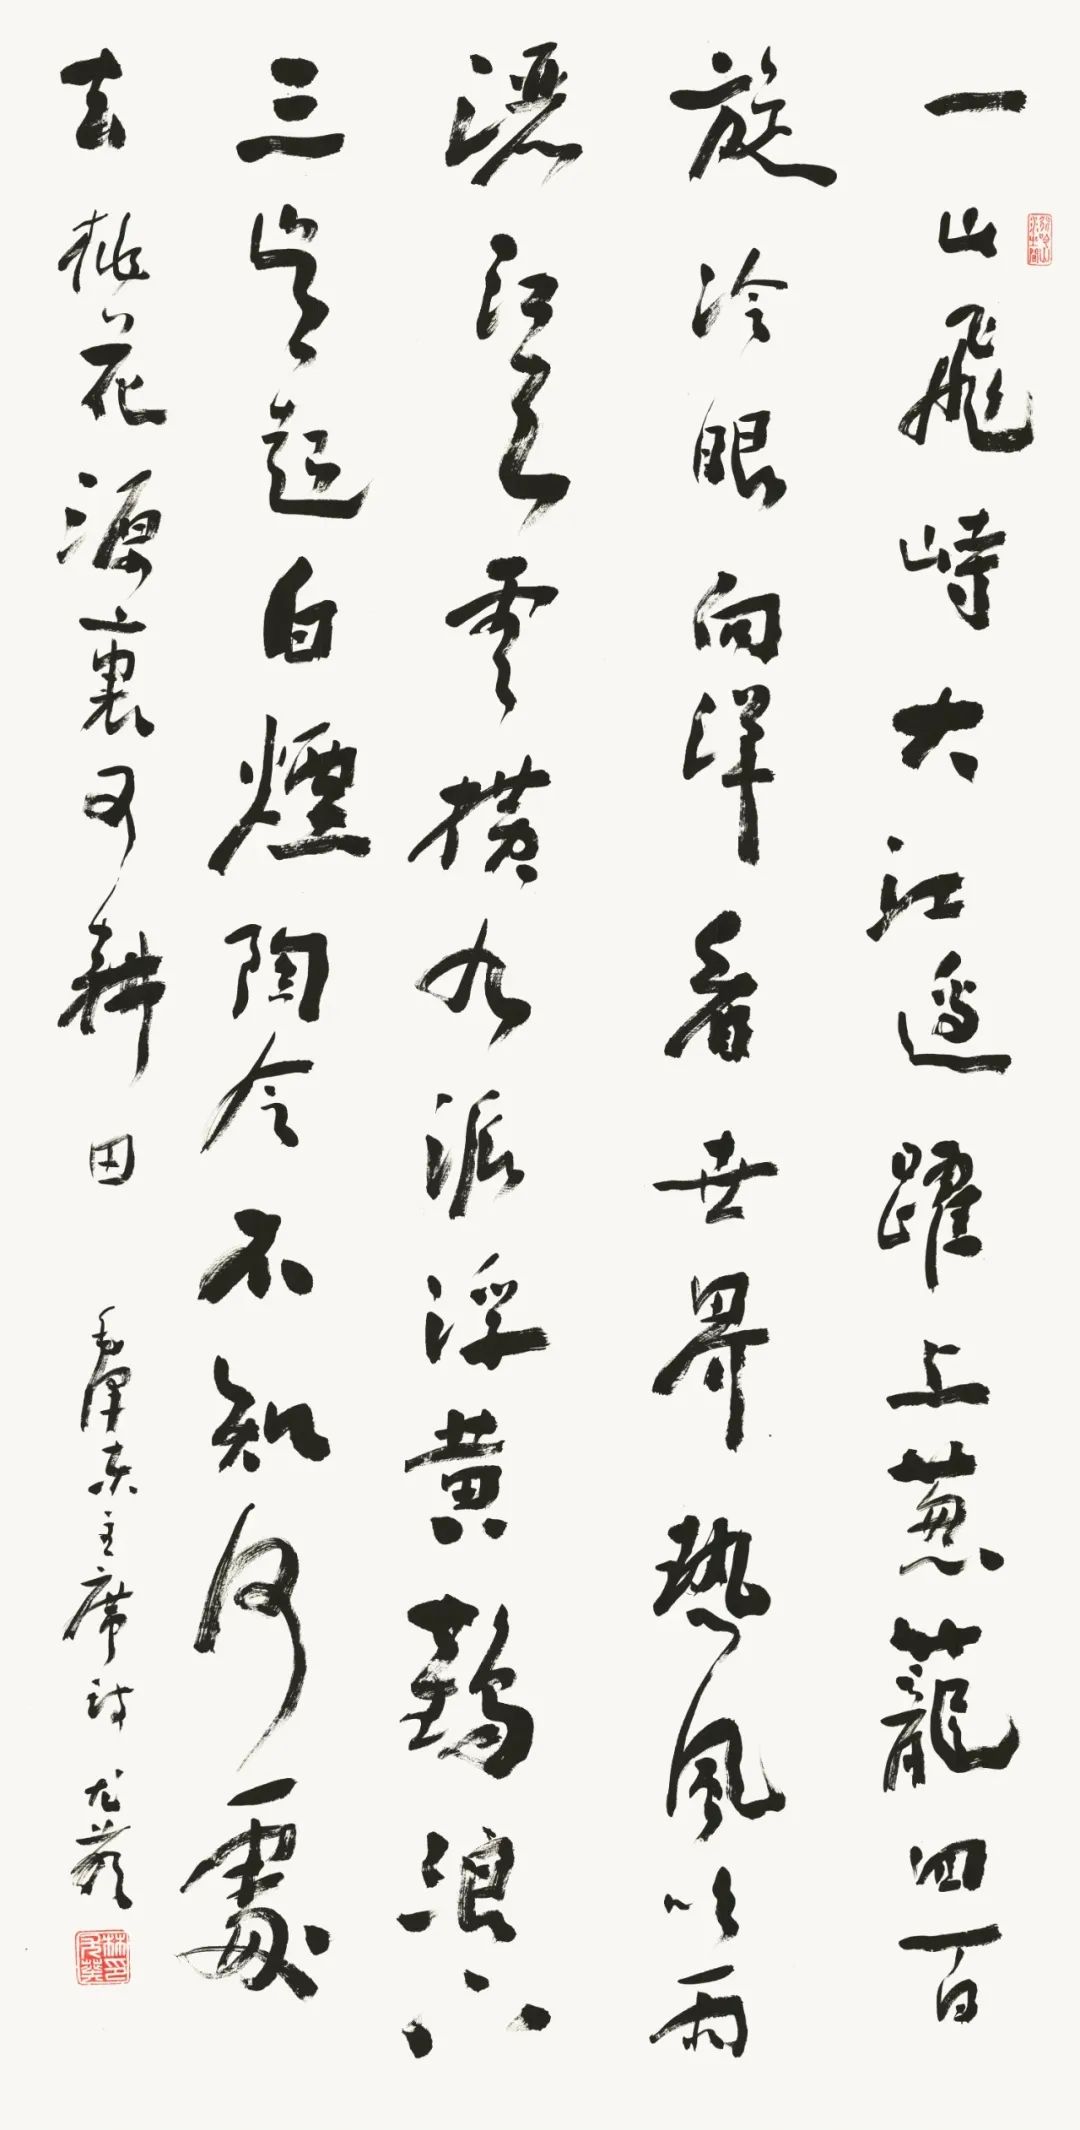 一山飛峙大江邊躍上葱蘢四百
旋冷眼向洋看世界熱風吹雨
灑江天雲橫九派浮黃鶴浪下
三吳起白煙陶令不知何處
去桃花源裏可耕田
毛澤東主席詩 尤葵
林尤葵印